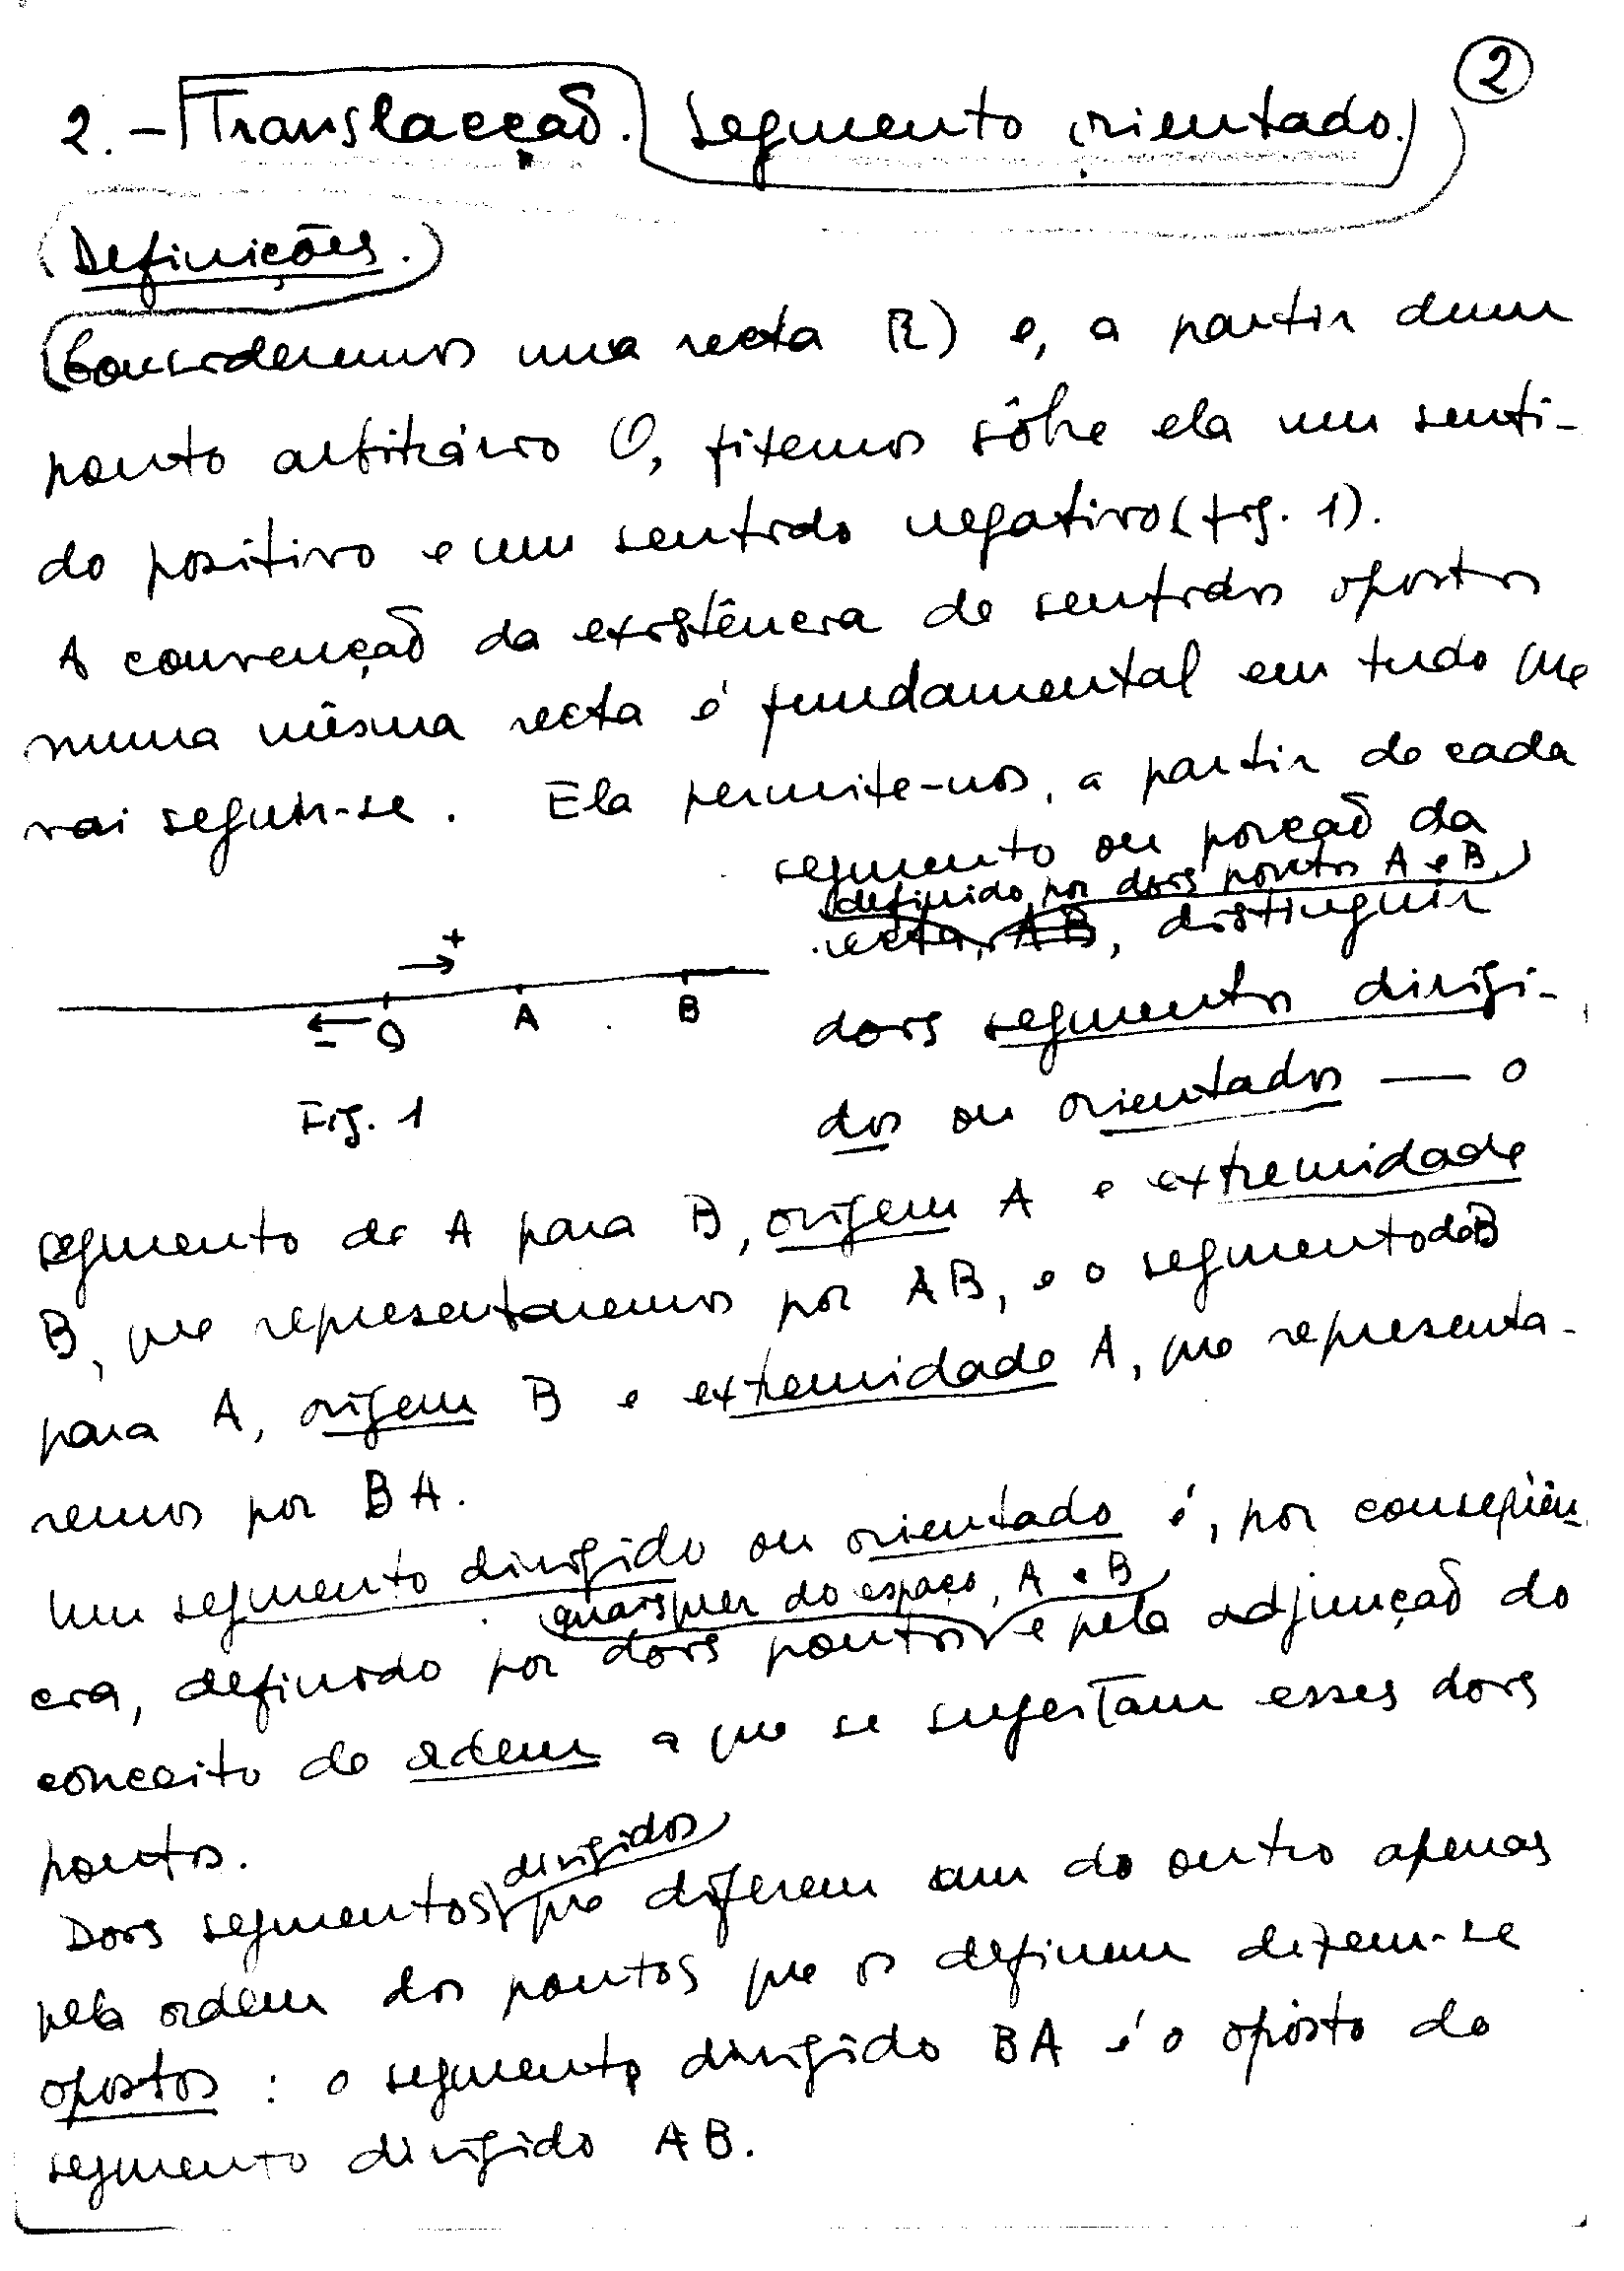 2
2. - Translacção. Segmento orientado.
Definições.
Consideremos uma recta R) e, a partir dum
ponto arbitrário O, fixemos sôbre ela um senti-
do positivo e um sentido negativo (fig. 1).
A convenção da existência de sentidos opostos
numa mêsma recta é fundamental em tudo que
vai seguir-se. Ela permite-nos, a partir de cada
segmento ou porção da
definido por dois pontos A e B
recta, AB, distinguir
+
O A B
-
dois segmentos dirigi-
dos ou orientados — o
Fig. 1
segmento de A para B, origem A e extremidade
B, que representaremos por AB, e o segmento de B
para A, origem B e extremidade A, que representa-
remos por BA.
Um segmento dirigido ou orientado é, por conseqüên
quaisquer do espaço, A e B
cia, definido por dois pontos e pela adjunção do
conceito de ordem a que se sugeitam esses dois
pontos.
dirigidos
Dois segmentos que diferem um do outro apenas
pela ordem dos pontos que os definem dizem-se
opostos : o segmento dirigido BA é o opôsto do
segmento dirigido AB.